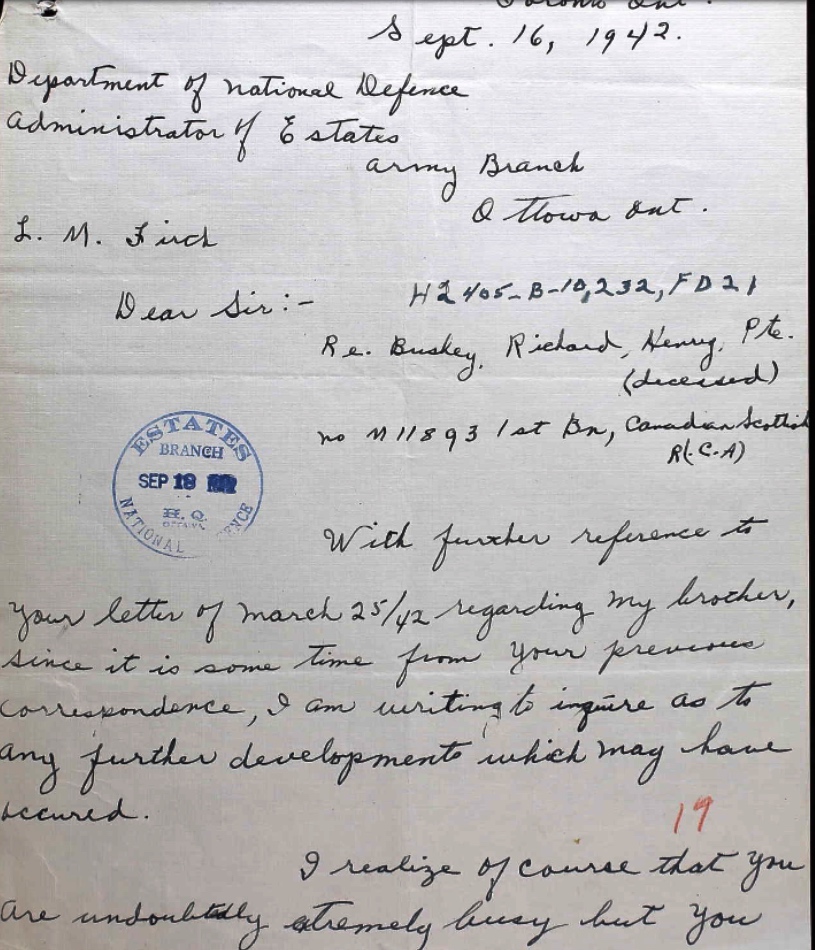 Toronto Ont.
Sept. 16, 1942.
Department of national Defence
Administrator of Estates
Army Branch
Ottowa Ont.
L. M. Firch
Dear Sir:-
H2405-B-10,232, FD21
Re. Buskey, Richard, Henry, Pte.
(deceased)
no M11893 1st Bn, Canadian Scottish
R(.C.A)
ESTATES
BRANCH
SEP 18
H.Q.
OTTAWA
NATIONAL
ENCE
With further reference to
your letter of march 25/42 regarding my brother,
since it is some time from your previous
correspondence, I am writing to inquire as to
any further developments which may have
occured.
19
I realize of course that you
are undoubtedly extremely busy but you